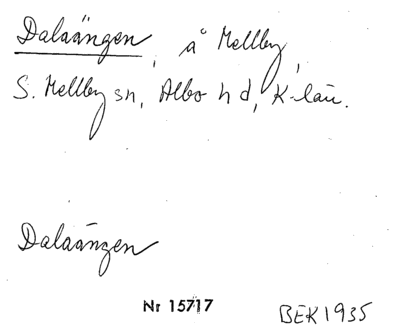 Dalaängen, å Mellby,
S. Mellby sn, Albo hd, K-län.
Dalaängen
Nr 15717
BEK 1935